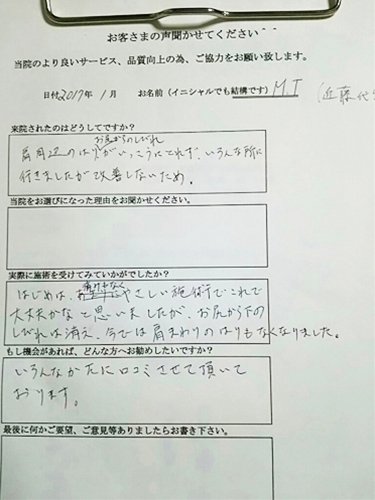 お客さまの声聞かせてください
当院のより良いサービス、品質向上の為、ご協力をお願い致します。
日付2017年 1月 お名前(イニシャルでも結構です) M.I (近藤代
来院されたのはどうしてですか?
お尻からのしびれ
肩周辺のはりがいっこうにとれず、いろんな所に
行きましたが改善しないため。
当院をお選びになった理由をお聞かせください。
実際に施術を受けてみていかがでしたか?
痛みもなく
はじめは、やさしい施術でこれで
大丈夫かなと思いましたが、お尻から下の
しびれは消え、今では肩まわりのはりもなくなりました。
もし機会があれば、どんな方へお勧めしたいですか?
いろんなかたに口コミさせて頂いて
おります。
最後に何かご要望、ご意見等ありましたらお書き下さい。